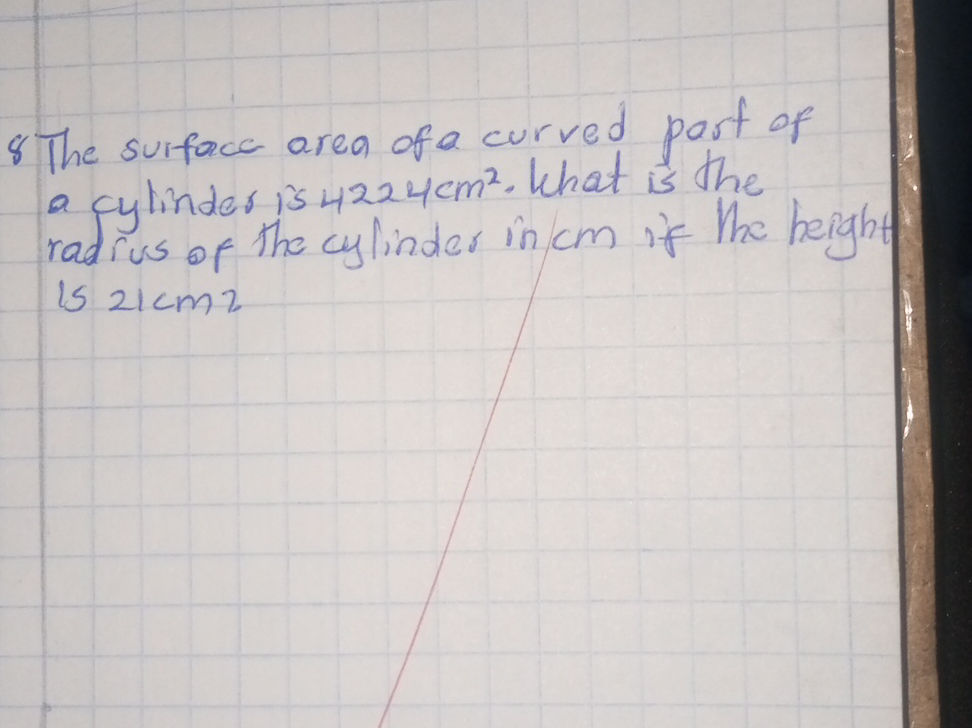 8 The surface area of a curved part of
a cylinder is 4224cm². What is the
radius of the cylinder in cm if the height
is 21cm?